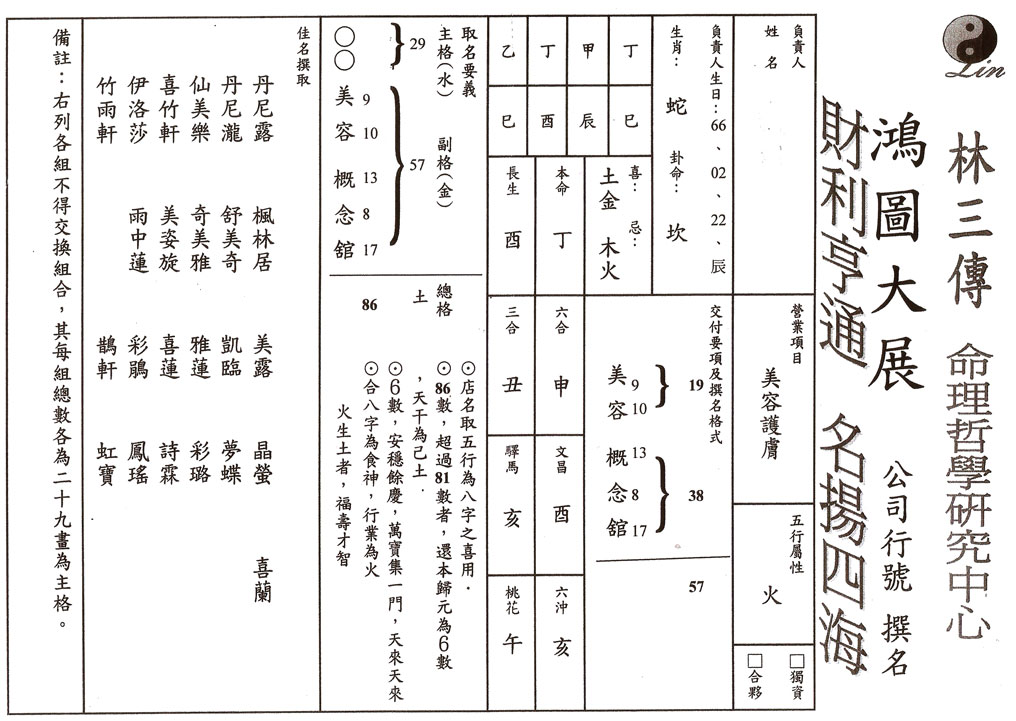 Lin
林三傳 命理哲學研究中心
鴻圖大展 公司行號 撰名
財利亨通 名揚四海
負責人
姓名
營業項目
美容護膚
五行屬性
火
□獨資
□合夥
負責人生日：66、02、22、辰
生肖： 蛇 卦命： 坎
交付要項及撰名格式
美 9
容 10
19
概 13
念 8
舘 17
38
57
丁 甲 丁 乙
巳 辰 酉 巳
喜： 忌：
土金 木火
本命 丁
長生 酉
六合 申
三合 丑
文昌 酉
驛馬 亥
六沖 亥
桃花 午
取名要義
主格(水) 副格(金)
29
57
○○
美 9
容 10
概 13
念 8
舘 17
總格
土
86
⊙店名取五行為八字之喜用．
⊙86數，超過81數者，還本歸元為6數
，天干為己土．
⊙6數，安穩餘慶，萬寶集一門，天來天來
⊙合八字為食神，行業為火
火生土者，福壽才智
佳名撰取
丹尼露 楓林居 美露 晶螢 喜蘭
丹尼瀧 舒美奇 凱臨 夢蝶
仙美樂 奇美雅 雅蓮 彩璐
喜竹軒 美姿旋 喜蓮 詩霖
伊洛莎 雨中蓮 彩鵑 鳳瑤
竹雨軒 鵲軒 虹寶
備註：右列各組不得交換組合，其每組總數各為二十九畫為主格。